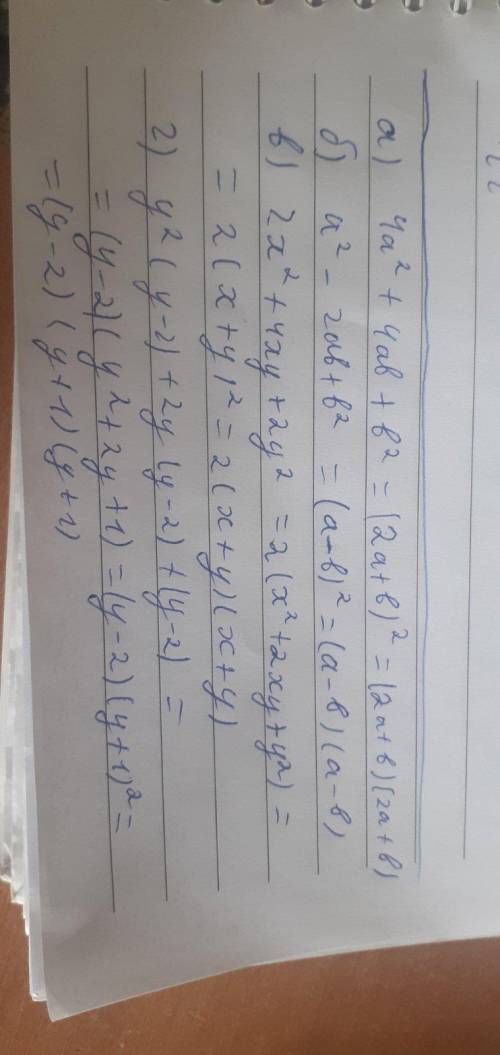 а) 4a² + 4ab + b² = (2a+b)² = (2a+b)(2a+b)
б) a² - 2ab + b² = (a-b)² = (a-b)(a-b)
в) 2x² + 4xy + 2y² = 2(x²+2xy+y²) =
= 2(x+y)² = 2(x+y)(x+y)
г) y²(y-2) + 2y(y-2) + (y-2) =
= (y-2)(y²+2y+1) = (y-2)(y+1)² =
= (y-2)(y+1)(y+1)